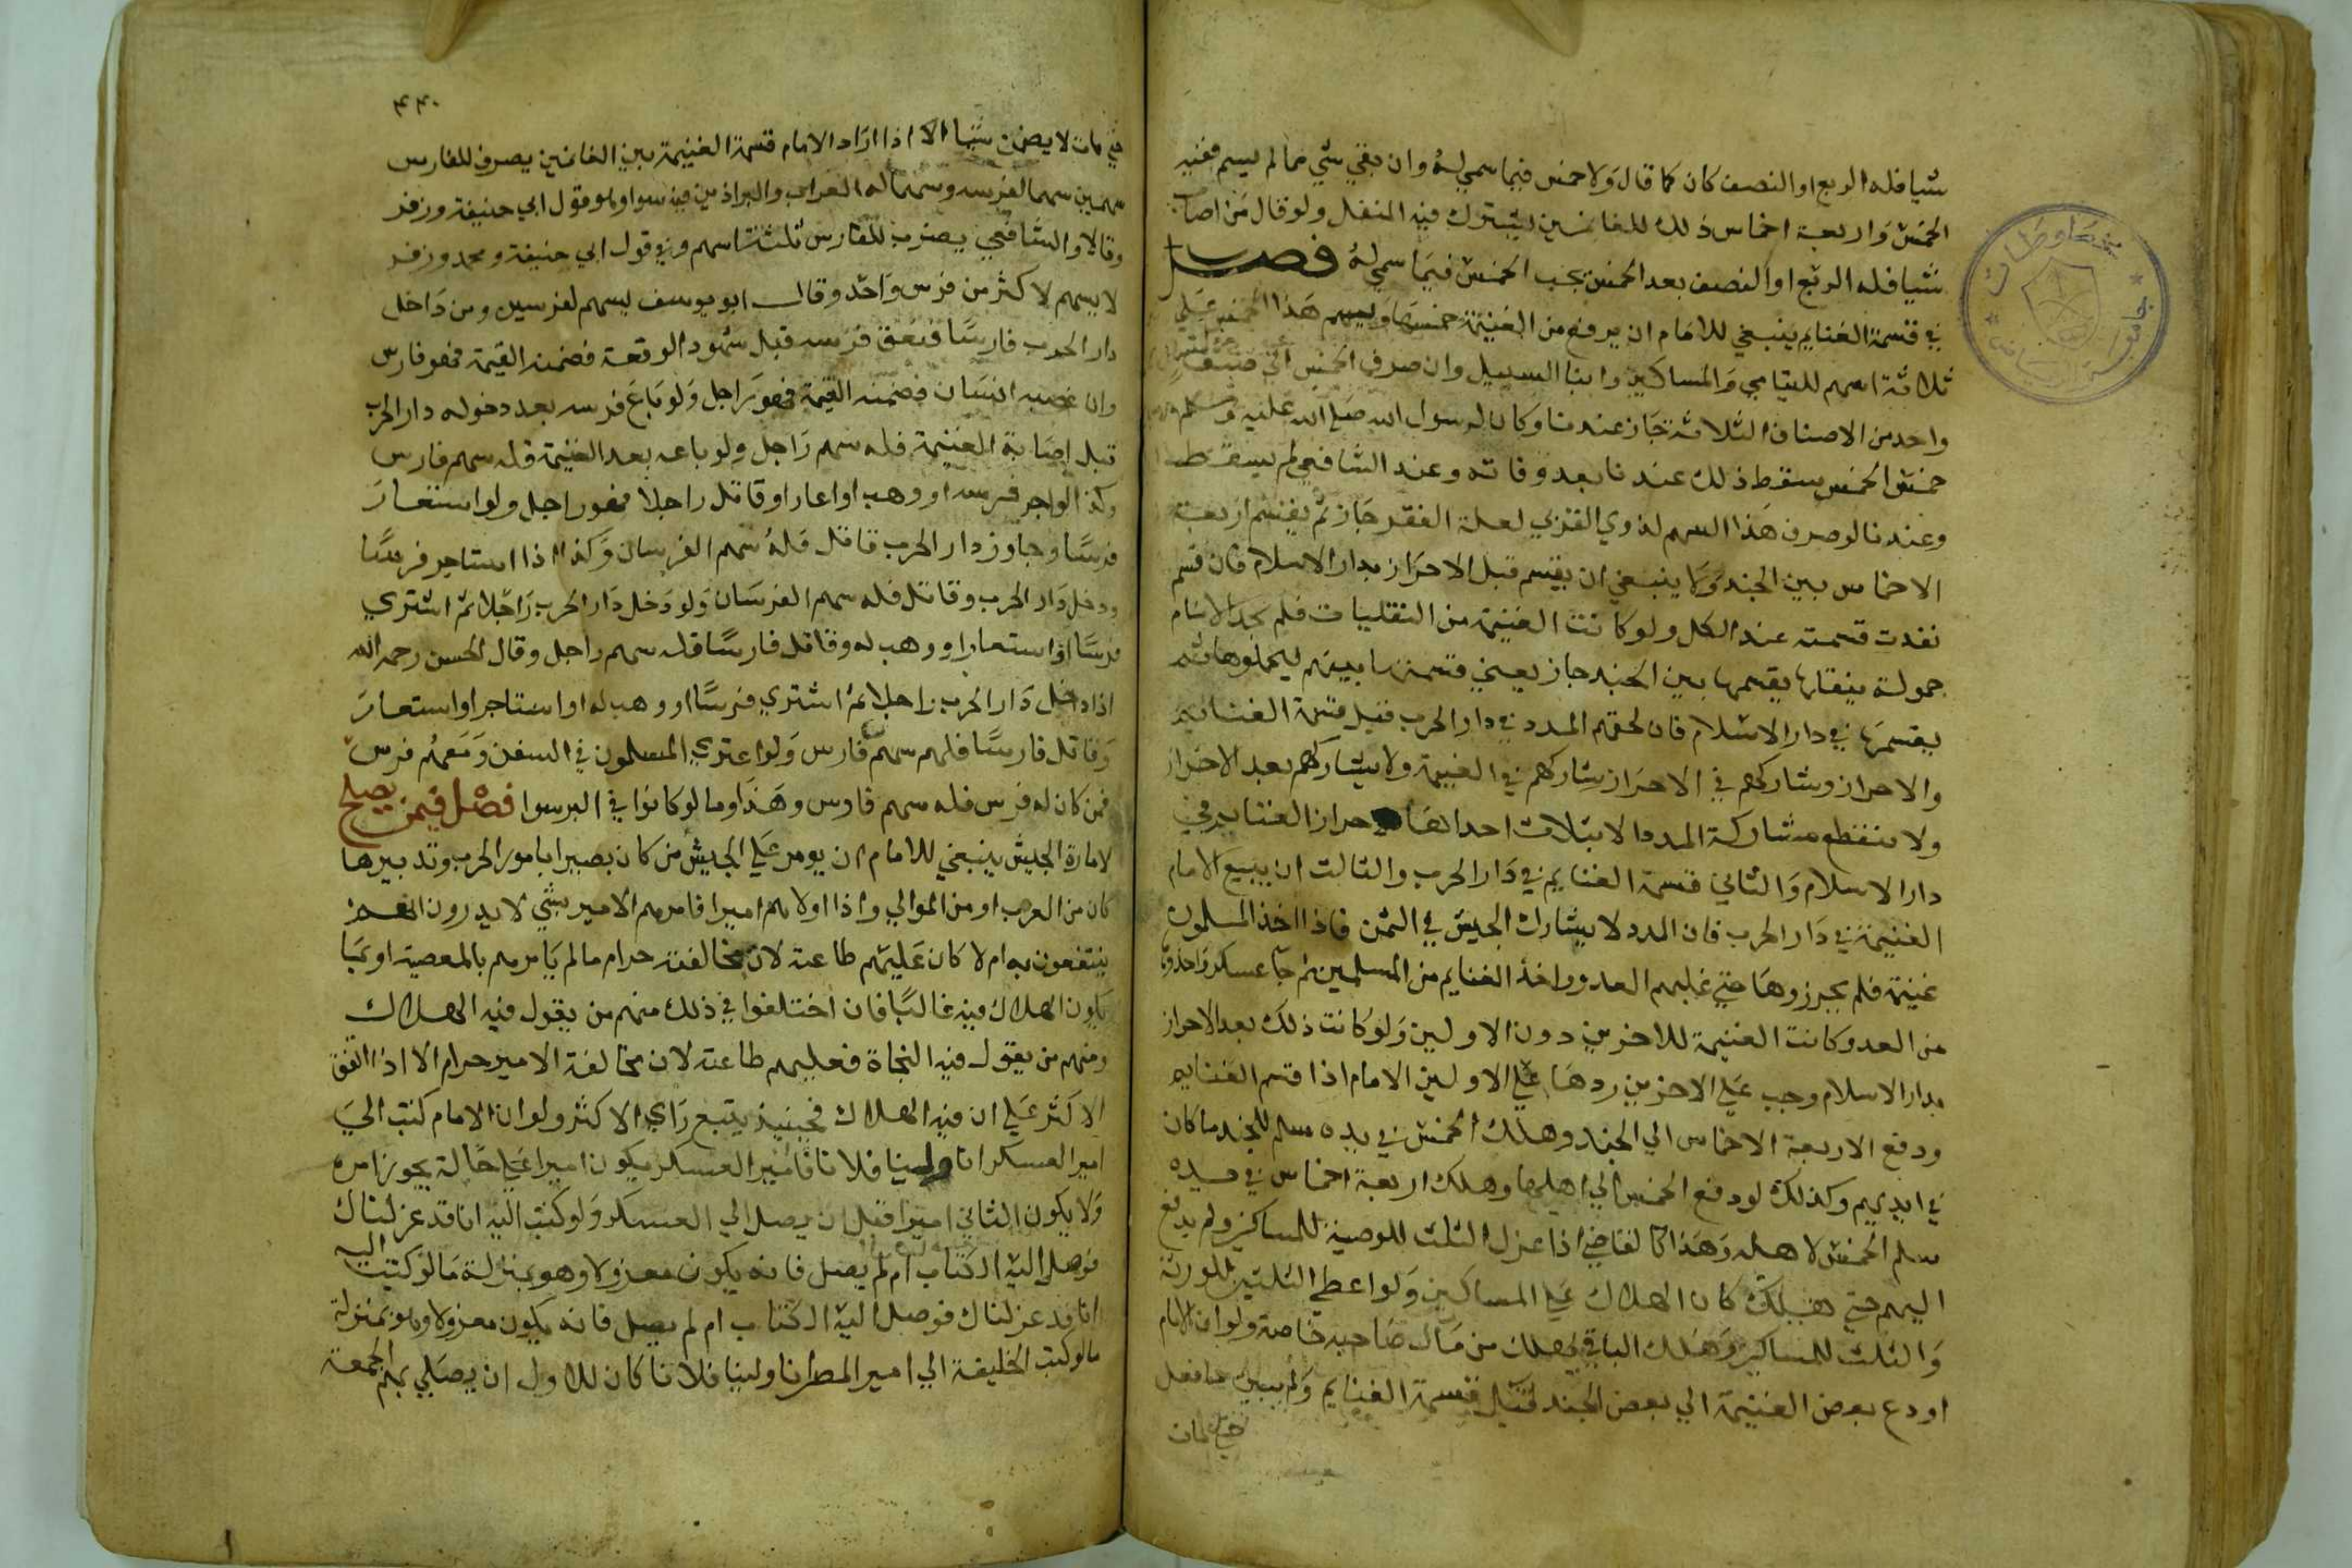 شيا فله الربع او النصف كان كما قال ولا خمس فيما سمي له وان بقي شي مما لم يسم ففيه
الخمس واربعة اخماس ذلك للغانمين يشترك فيه المنفل ولو قال من اصاب
شيا فله الربع او النصف بعد الخمس يجب الخمس فيما سمي له فصل
في قسمة الغنايم ينبغي للامام ان يرفع من الغنيمة خمسها ويسهم هذا الخمس علي
ثلاثة اسهم لليتامي والمساكين وابنا السبيل وان صرف الخمس الي صنف
واحد من الاصناف الثلاثة جاز عندنا وكان لرسول الله صلي الله عليه وسلم
خمس الخمس سقط ذلك عندنا بعد وفاته وعند الشافعي لم يسقط
وعندنا لو صرف هذا السهم لذوي القربي لعلة الفقر جاز ثم يقسم اربعة
الاخماس بين الجند ولا ينبغي ان يقسم قبل الاحراز بدار الاسلام فان قسم
نفدت قسمته عند الكل ولو كانت الغنيمة من النقليات فلم يجد الامام
حمولة ينقلها يقسمها بين الجند جاز يعني قسمتها بينهم ليحملوها ثم
يقسمها في دار الاسلام فان لحقهم المدد في دار الحرب قبل قسمة الغنايم
والاحراز وشاركهم في الاحراز شاركهم في الغنيمة ولا يشاركهم بعد الاحراز
ولا منقطع مشاركة المدد الا بثلاث احداها احراز الغنايم في
دار الاسلام والثاني قسمة الغنايم في دار الحرب والثالث ان يبيع الامام
الغنيمة في دار الحرب فان المدد لا يشارك الجيش في الثمن فاذا اخذ المسلمون
غنيمة فلم يحرزوها حتي غلبهم العدو واخذ الغنايم من المسلمين ثم جا عسكر واخذوها
من العدو كانت الغنيمة للاخرين دون الاولين ولو كانت ذلك بعد الاحراز
بدار الاسلام وجب علي الاخرين ردها علي الاولين الامام اذا قسم الغنايم
ودفع الاربعة الاخماس الي الجند وهلك الخمس في يده سلم للجند ما كان
في ايديهم وكذلك لو دفع الخمس الي اهليها وهلك اربعة اخماس في يده
سلم الخمس لاهله وهذا كالقاضي اذا عزل الثلث للوصية للمساكين ولم يدفع
اليهم حتي هلك كان الهلاك علي المساكين ولو اعطي الثلثين للورثة
والثلث للمساكين وهلك الباقي يهلك من مال صاحبه خاصة ولو ان الامام
اودع بعض الغنيمة الي بعض الجند قبل قسمة الغنايم ولم يبين ما فعل
حتي مات
٤٤٠
حتي مات لا يضمن شيا الا اذا اراد الامام قسمة الغنيمة بين الغانمين يصرف للفارس
سهمين سهما لفرسه وسهما له العراب والبراذين فيه سوا وهو قول ابي حنيفة وزفر
وقالا والشافعي يصرف للفارس ثلثة اسهم وفي قول ابي حنيفة ومحمد وزفر
لا يسهم لاكثر من فرس واحد وقال ابو يوسف يسهم لفرسين ومن داخل
دار الحرب فارسا فنفق فرسه قبل شهود الوقعة فضمنه القيمة فهو فارس
وان غصبه انسان فضمنه القيمة فهو راجل ولو باع فرسه بعد دخوله دار الحرب
قبل اصابة الغنيمة فله سهم راجل ولو باعه بعد الغنيمة فله سهم فارس
وكذا لو اجر فرسه او وهب او اعار او قاتل راجلا فهو راجل ولو استعار
فرسا وجاوز دار الحرب قاتل فله سهم الفرسان وكذا اذا استاجر فرسا
ودخل دار الحرب وقاتل فله سهم الفرسان ولو دخل دار الحرب راجلا ثم اشتري
فرسا او استعار او وهب له وقاتل فارسا فله سهم راجل وقال الحسن رحمه الله
اذا دخل دار الحرب راجلا ثم اشتري فرسا او وهب له او استاجر او استعار
وقاتل فارسا فلهم سهم فارس ولو اعتري المسلمون في السفن ومعهم فرس
فمن كان له فرس فله سهم فارس وهذا وما لو كانوا في البر سوا فصل فيمن يصلح
لامارة الجيش ينبغي للامام ان يومر علي الجيش من كان بصيرا بامور الحرب وتدبيرها
كان من العرب او من الموالي واذا اولاهم اميرا فامرهم الامير بشي لا يدرون انهم
ينتفعون به ام لا كان عليهم طاعته لان مخالفته حرام ما لم يامرهم بالمعصية او بما
يكون الهلاك فيه غالبا فان اختلفوا في ذلك منهم من يقول فيه الهلاك
ومنهم من يقول فيه النجاة فعليهم طاعته لان مخالفة الامير حرام الا اذا اتفق
الاكثر علي ان فيه الهلاك فحينيذ يتبع راي الاكثر ولو ان الامام كتب الي
امير العسكر انا ولينا فلانا فامير العسكر يكون اميرا علي حاله يجوز امره
ولا يكون الثاني اميرا قبل ان يصل الي العسكر ولو كتب اليه انا قد عزلناك
فوصل اليه الكتاب ام لم يصل فانه يكون معزولا وهو بمنزلة ما لو كتب اليه
انا قد عزلناك فوصل اليه الكتاب ام لم يصل فانه يكون معزولا وهو بمنزلة
ما لو كتب الخليفة الي امير المصر انا ولينا فلانا كان للاول ان يصلي بهم الجمعة